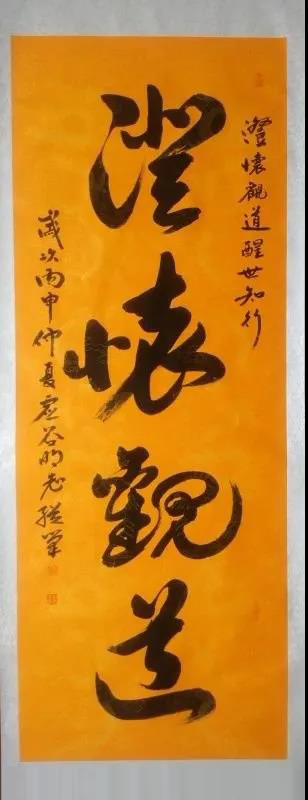 澄懷觀道醒世知行
澄懷觀道
歲次丙申仲夏虛谷明志